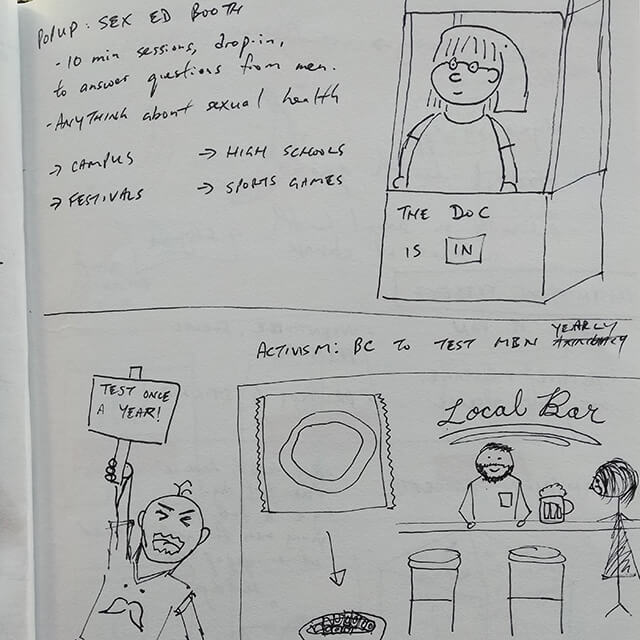 POPUP: SEX ED BOOTH
- 10 min sessions, drop-in,
to answer questions from men.
- ANYTHING about sexual health
→ CAMPUS → HIGH SCHOOLS
→ FESTIVALS → SPORTS GAMES
THE DOC
IS IN
ACTIVISM: BC TO TEST MEN YEARLY
TEST ONCE
A YEAR!
Local Bar